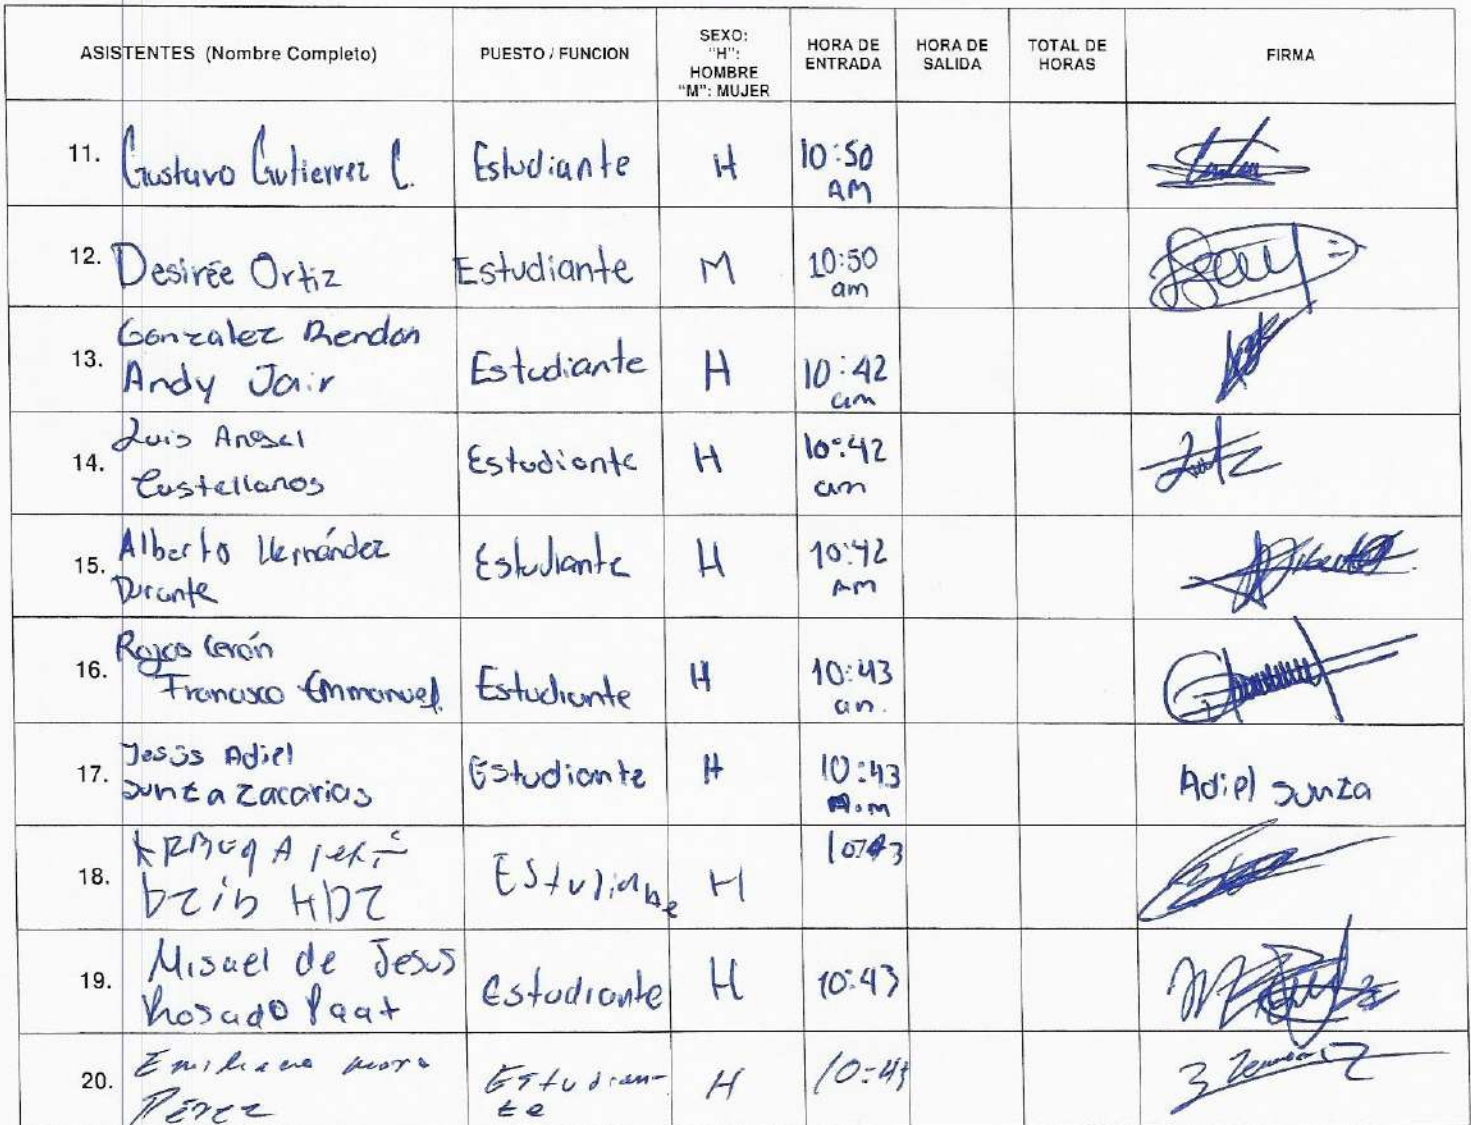 ASISTENTES (Nombre Completo) PUESTO / FUNCION SEXO: "H": HOMBRE "M": MUJER HORA DE ENTRADA HORA DE SALIDA TOTAL DE HORAS FIRMA
11. Gustavo Gutierrez C. Estudiante H 10:50 AM
12. Desirée Ortiz Estudiante M 10:50 am
13. Gonzalez Rendon Andy Jair Estudiante H 10:42 am
14. Luis Angel Castellanos Estudiante H 10:42 am
15. Alberto Hernández Durante Estudiante H 10:42 AM
16. Rojas Cerón Francisco Emmanuel Estudiante H 10:43 am.
17. Jesús Adiel Sunza Zacarias Estudiante H 10:43 A.m Adiel Sunza
18. Dzib HDZ Estudiante H 10:43
19. Misael de Jesus Rosado Paat Estudiante H 10:43
20. Emiliano mora Pérez Estudian- te H 10:43